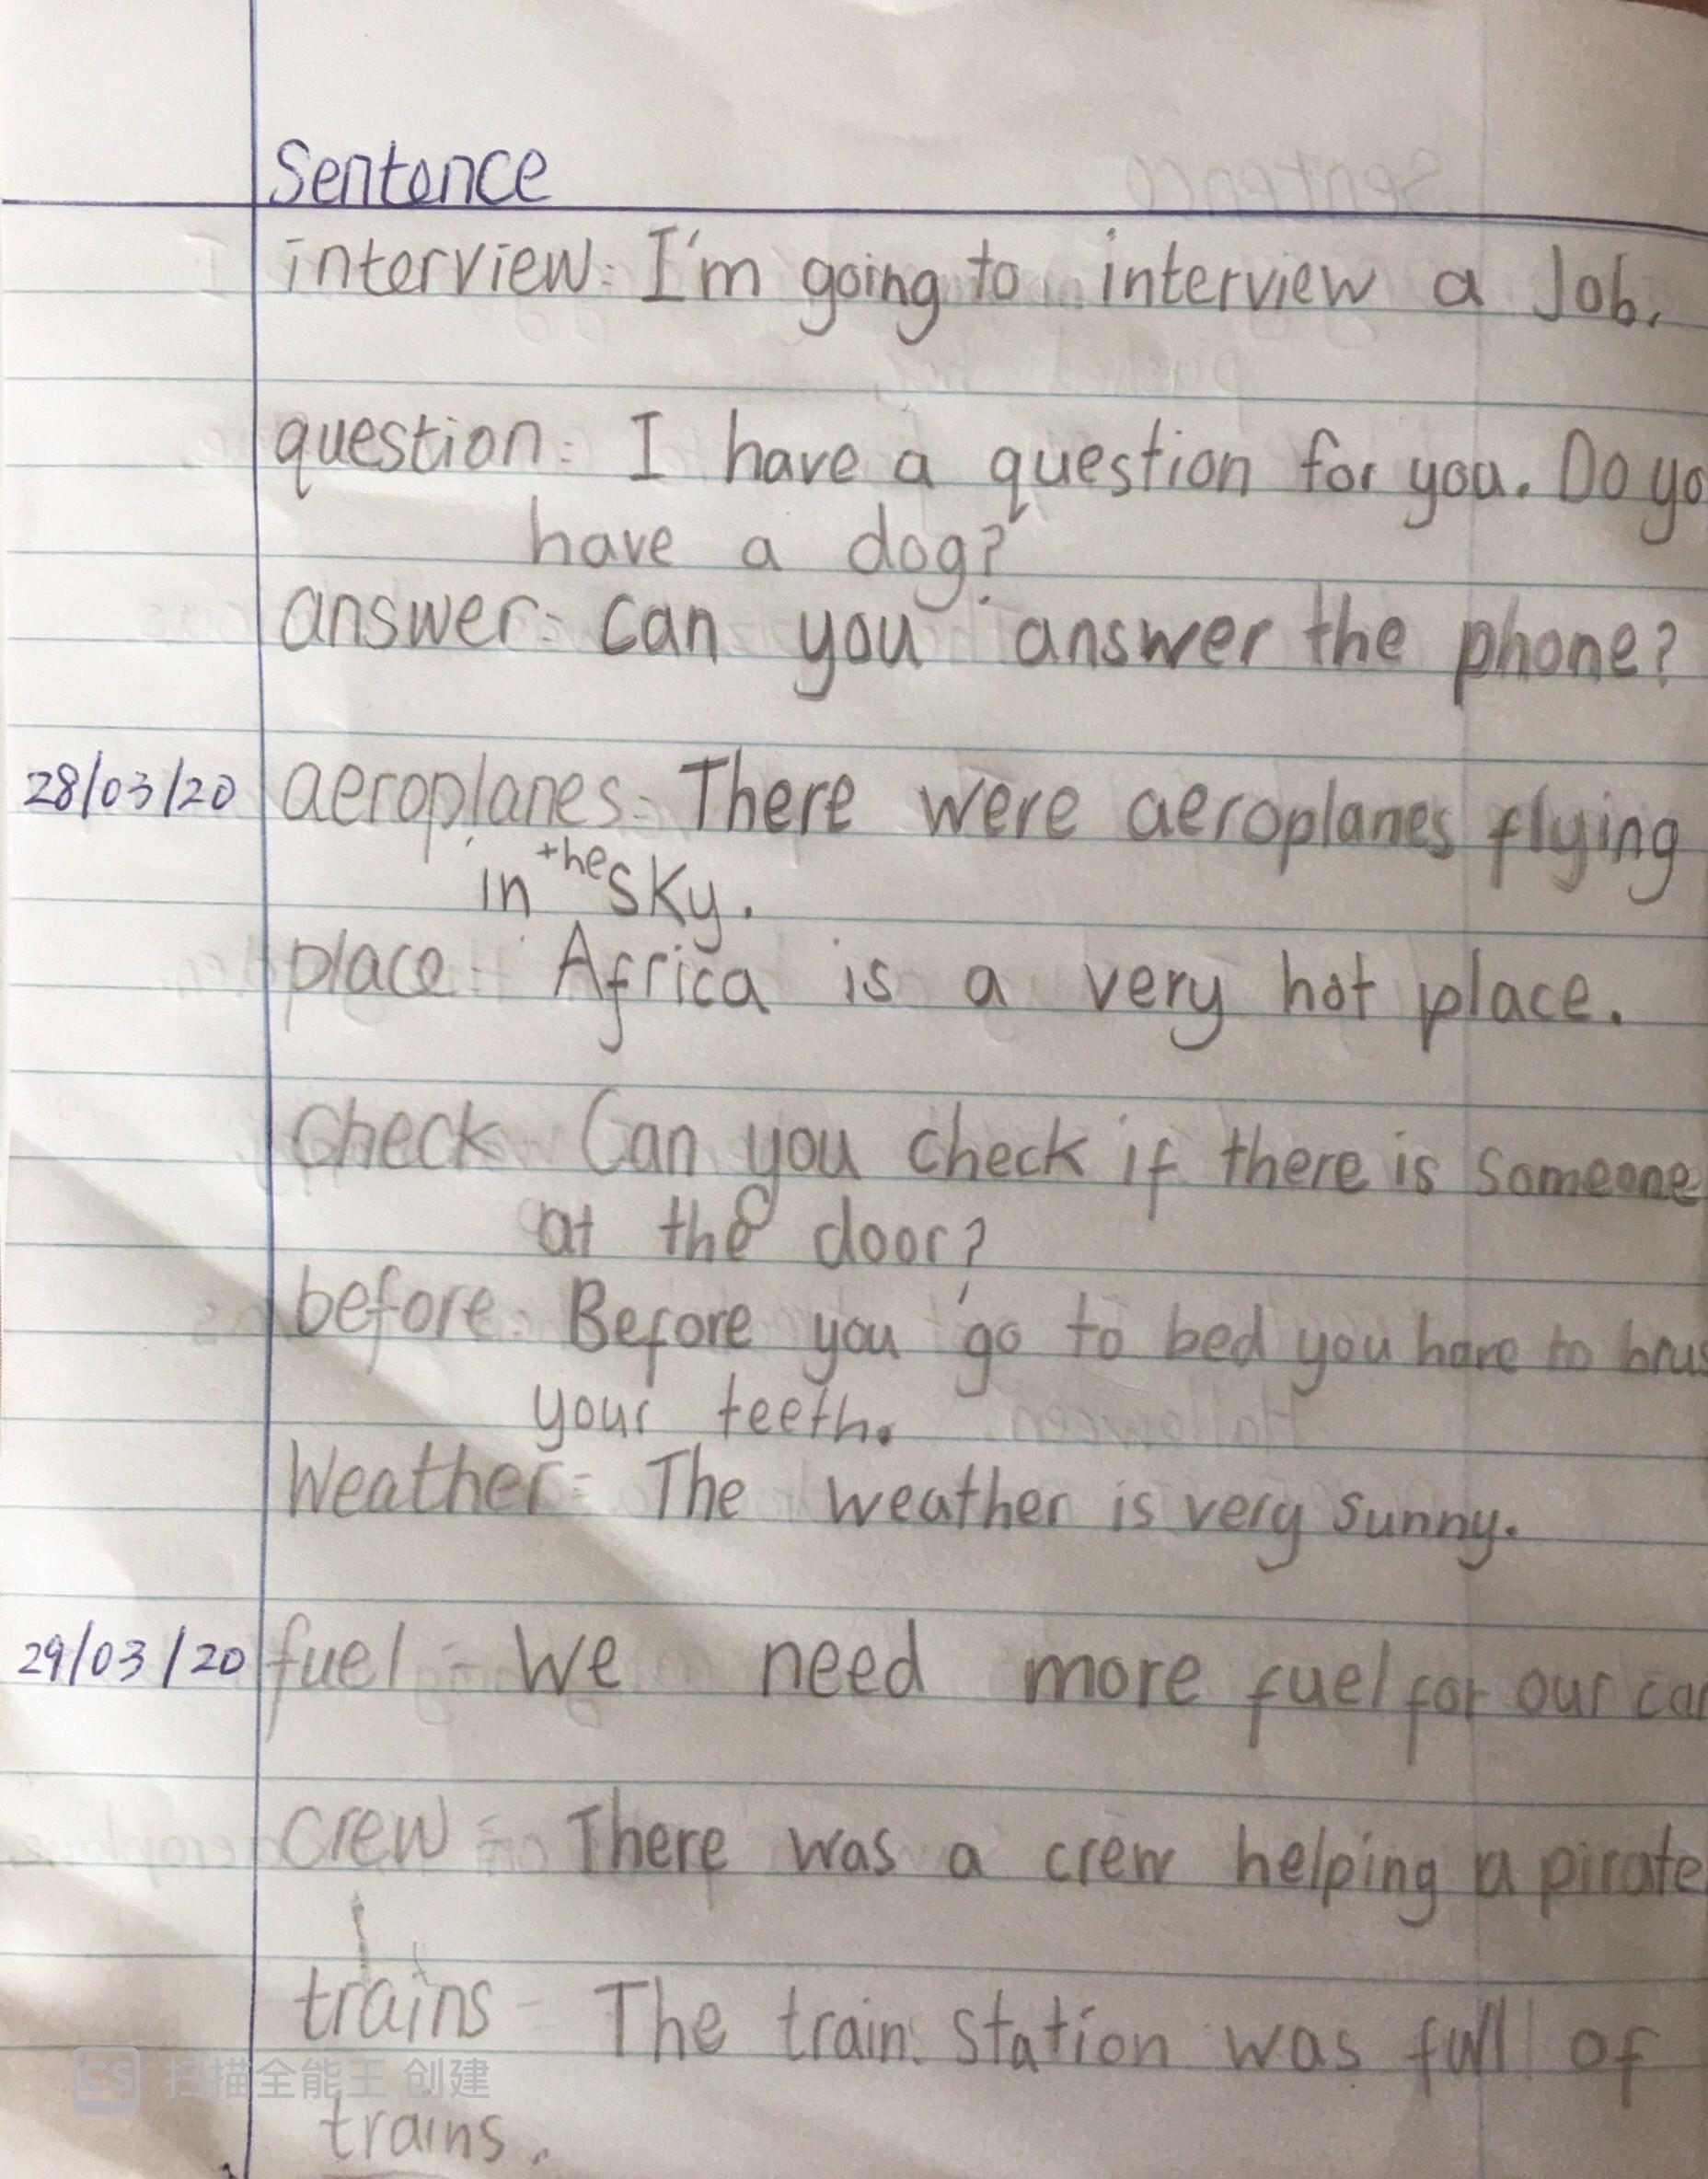 Sentence
interview: I'm going to interview a Job.
question: I have a question for you. Do yo
have a dog?
answer: Can you answer the phone?
28/03/20 aeroplanes: There were aeroplanes flying
in the sky.
place: Africa is a very hot place.
Check Can you check if there is someone
at the door?
before: Before you go to bed you have to brus
your teeth.
Weather: The weather is very sunny.
29/03/20 fuel: We need more fuel for our car
crew: There was a crew helping a pirate
trains: The train station was full of
trains.
CS 扫描全能王 创建